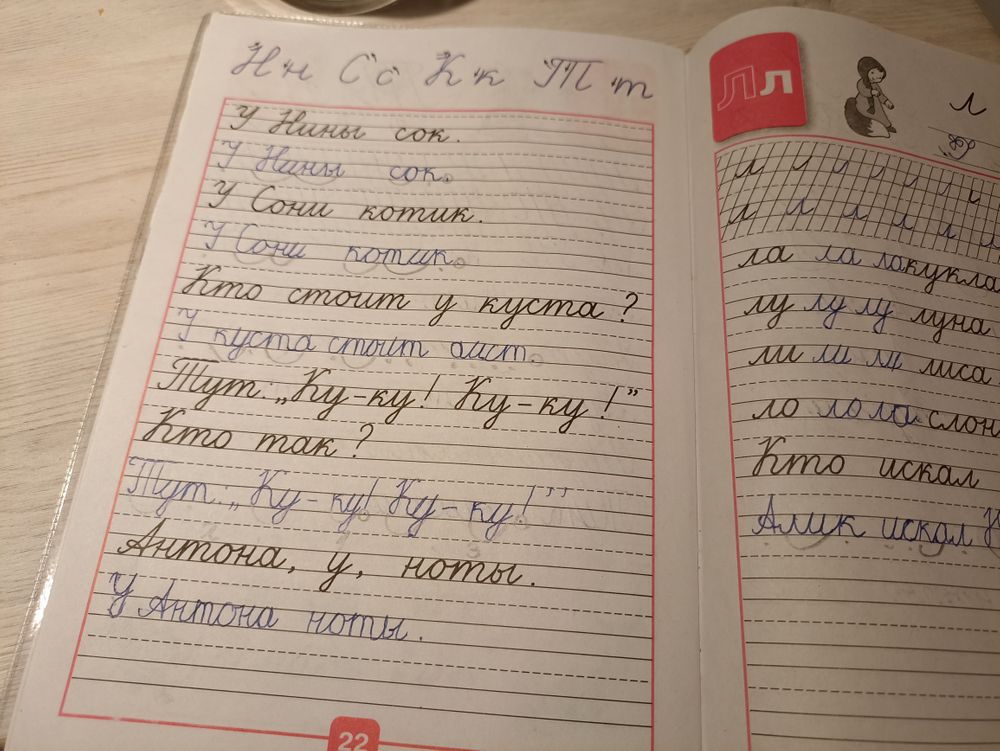 Н н С с К к Т т
У Нины сок.
У Нины сок.
У Сони котик.
У Сони котик.
Кто стоит у куста?
У куста стоит аист.
Тут: „Ку-ку! Ку-ку!”
Кто так?
Тут: „Ку-ку! Ку-ку!”
Антона, у, ноты.
У Антона ноты.
22
Лл
л
л л л л л л
л л л л л л
ла ла ла кукла
лу лу лу луна
ли ли ли лиса
ло ло ло слон
Кто искал
Алик искал Н